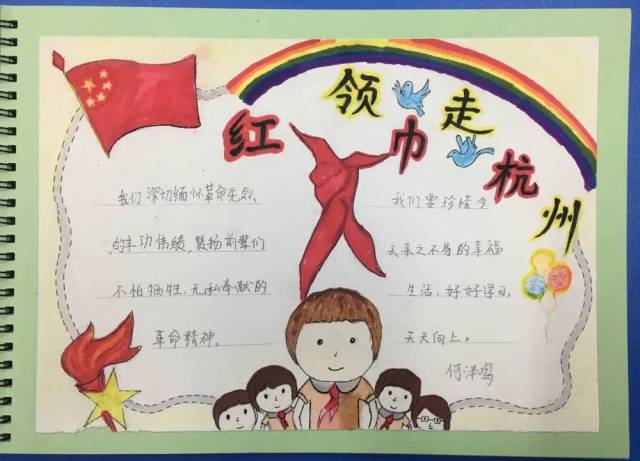 红领巾走杭州
我们深切缅怀革命先烈
的丰功伟绩,赞扬前辈们
不怕牺牲,无私奉献的
革命精神。
我们要珍惜今
天来之不易的幸福
生活,好好学习,
天天向上。
何洋鸣